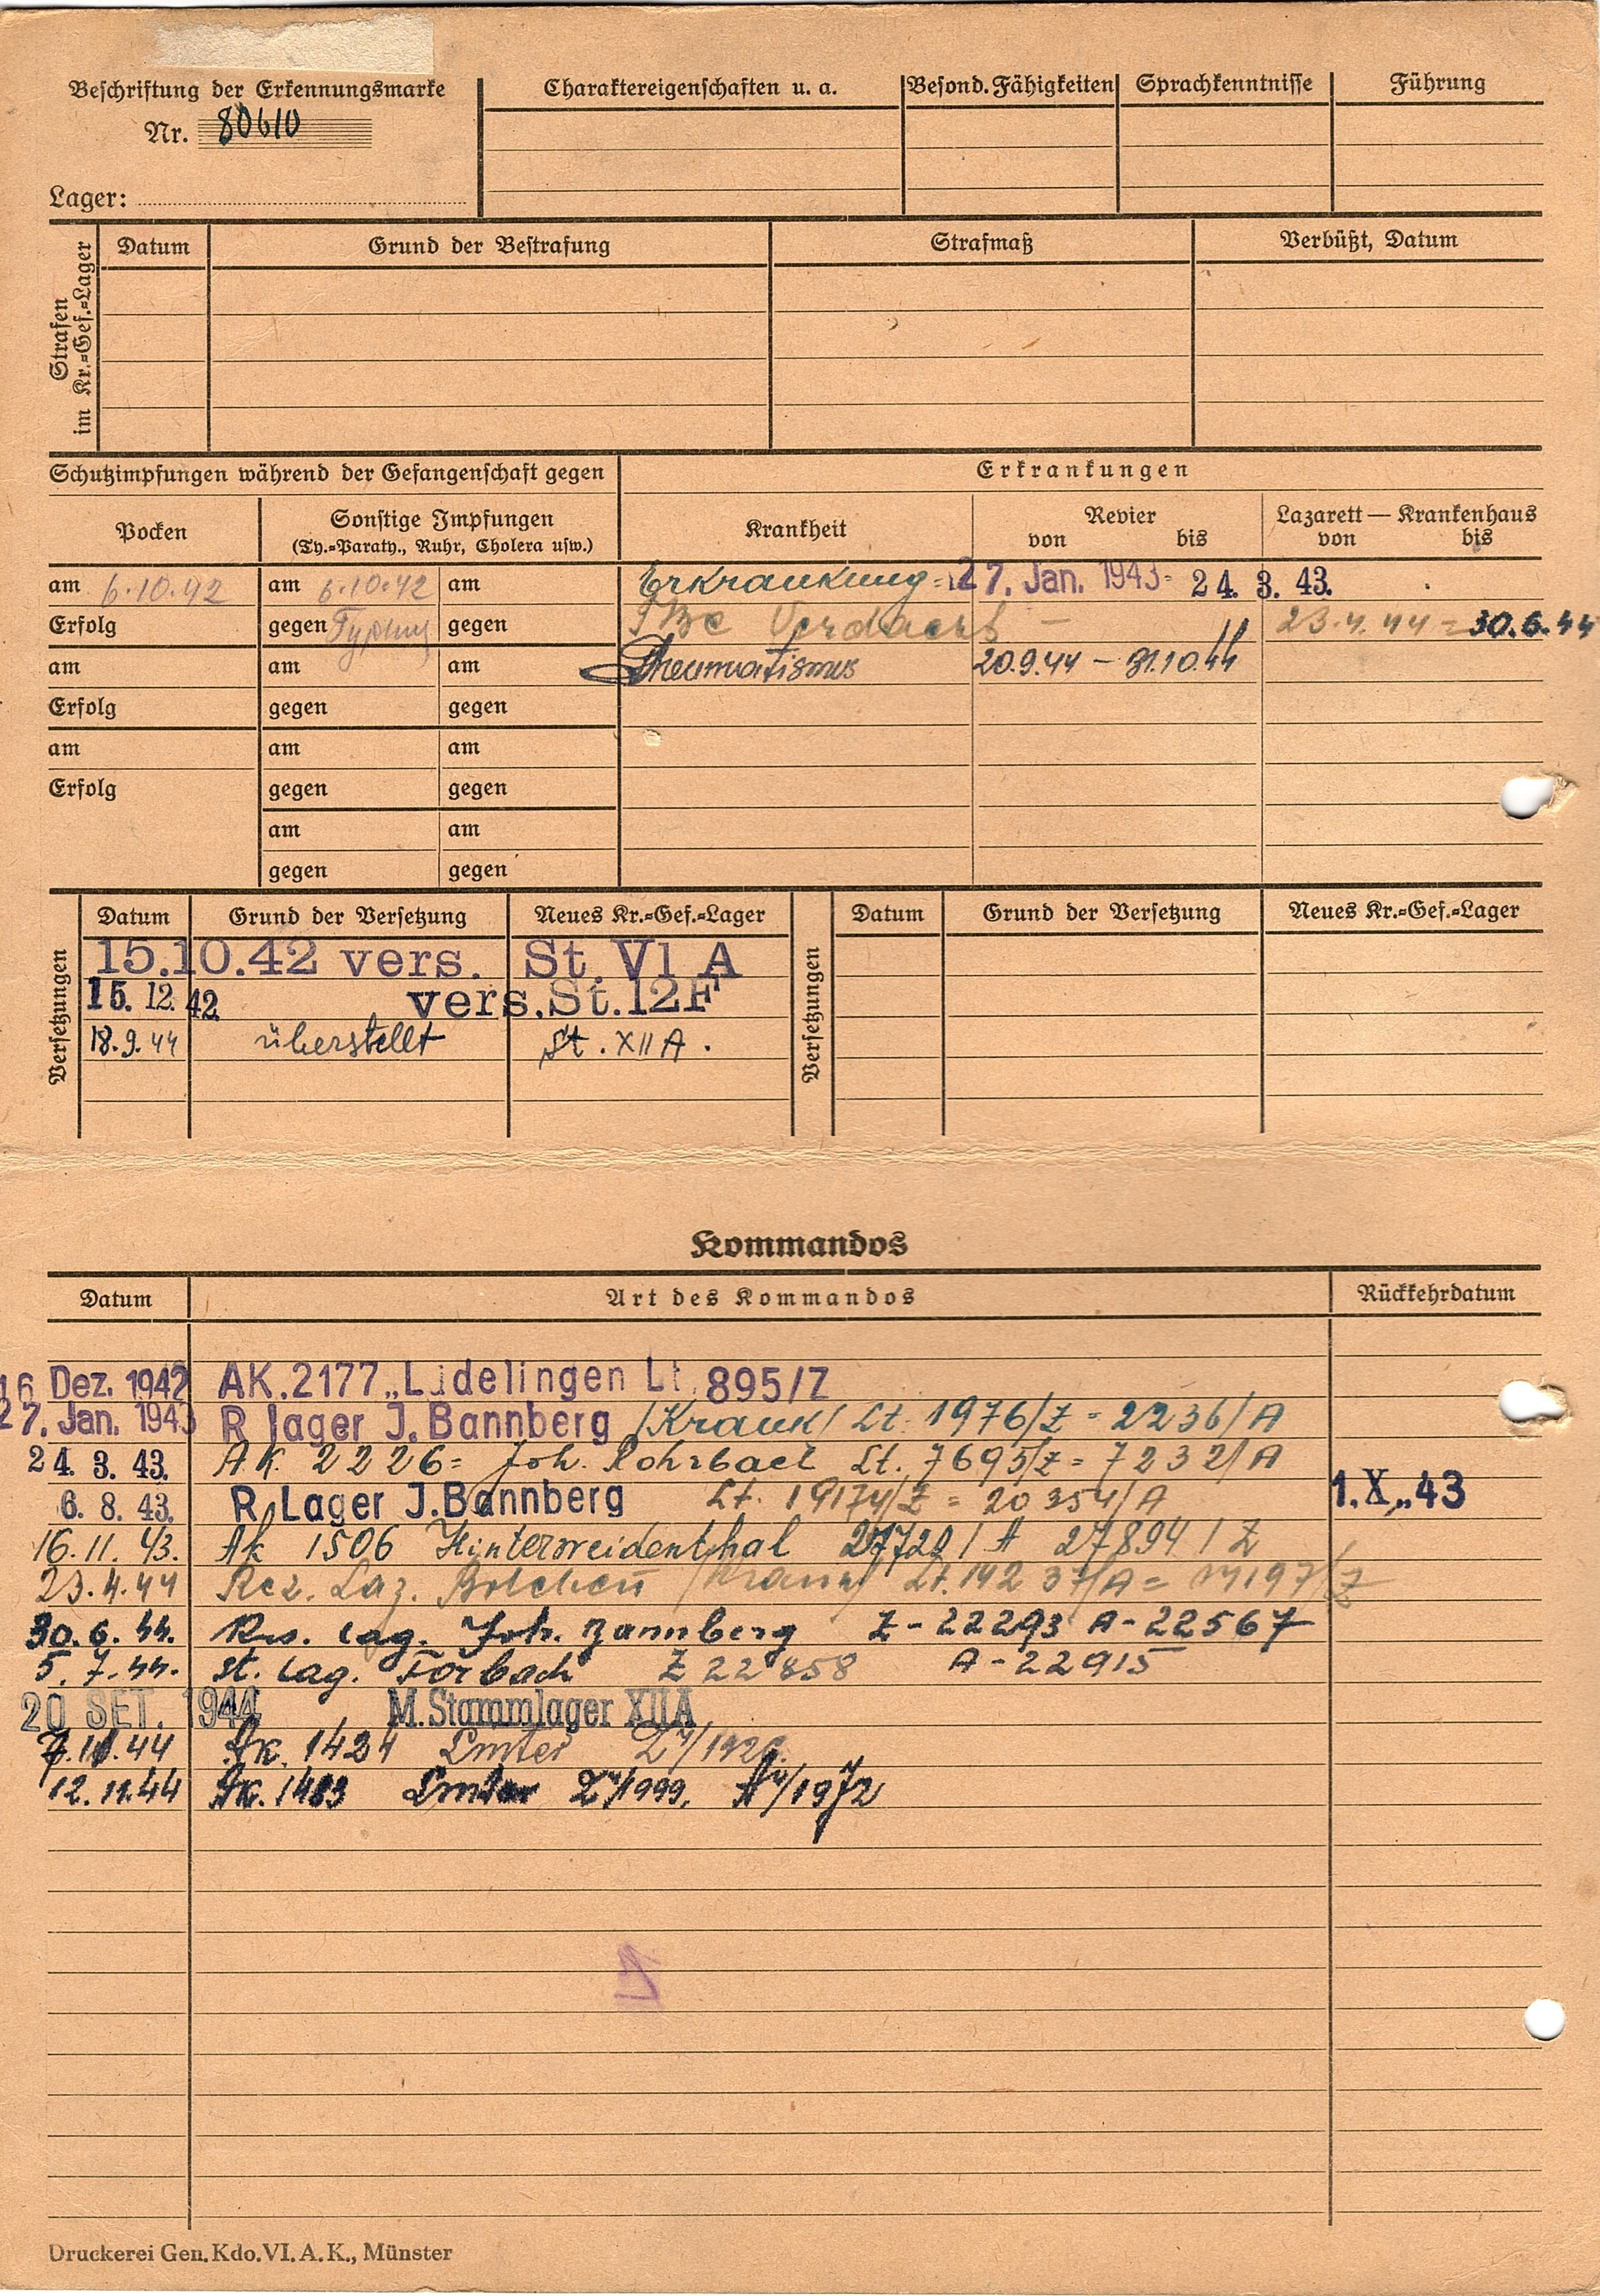 Beschriftung der Erkennungsmarke
Nr. 80610
Lager:
Charaktereigenschaften u. a.
Besond. Fähigkeiten
Sprachkenntnisse
Führung
Strafen im Kr.=Gef.=Lager
Datum Grund der Bestrafung Strafmaß Verbüßt, Datum
Schutzimpfungen während der Gefangenschaft gegen
Erkrankungen
Pocken
Sonstige Impfungen
(Ty.=Paraty., Ruhr, Cholera usw.)
Krankheit
Revier
von bis
Lazarett — Krankenhaus
von bis
am 6.10.42 am 6.10.42 am Erkrankung= 27. Jan. 1943= 24. 3. 43.
Erfolg gegen gegen TBc Verdacht — 23.4.44 = 30.6.44
am am am Rheumatismus 20.9.44 — 31.10.44
Erfolg gegen gegen
am am am
Erfolg gegen gegen
am am
gegen gegen
Versetzungen
Datum Grund der Versetzung Neues Kr.=Gef.=Lager
15.10.42 vers. St. VI A
15. 12. 42. vers. St. 12F
18.9.44 überstellt St. XII A.
Versetzungen
Datum Grund der Versetzung Neues Kr.=Gef.=Lager
Kommandos
Datum Art des Kommandos Rückkehrdatum
16 Dez. 1942 AK. 2177 „Lüdelingen Lt. 895/Z
27. Jan. 1943 R lager J. Bannberg /Krank/ Lt. 1976/Z = 2236/A
24. 3. 43. A.K. 2226= Joh. Rohrbach Lt. 7695/Z = 7232/A
6. 8. 43. R. Lager J. Bannberg Lt. 19174/Z = 20354/A 1. X „43
16. 11. 43. Ak 1506 Hinterweidenthal 27720 / A 27894 / Z
23. 4. 44 Res. Laz. Bolchen /Krank/ Lt. 14237/A =
30. 6. 44. Res. Lag. Joh. Bannberg Z - 22293 A - 22567
5. 7. 44. St. Lag. Forbach Z 22858 A - 22915
20 SET. 1944 M. Stammlager XIIA
44 Ak. 1424 Lmter
12. 11. 44 Ak. 1483 Lmter Z 1999. A 1972
Druckerei Gen. Kdo. VI. A. K., Münster